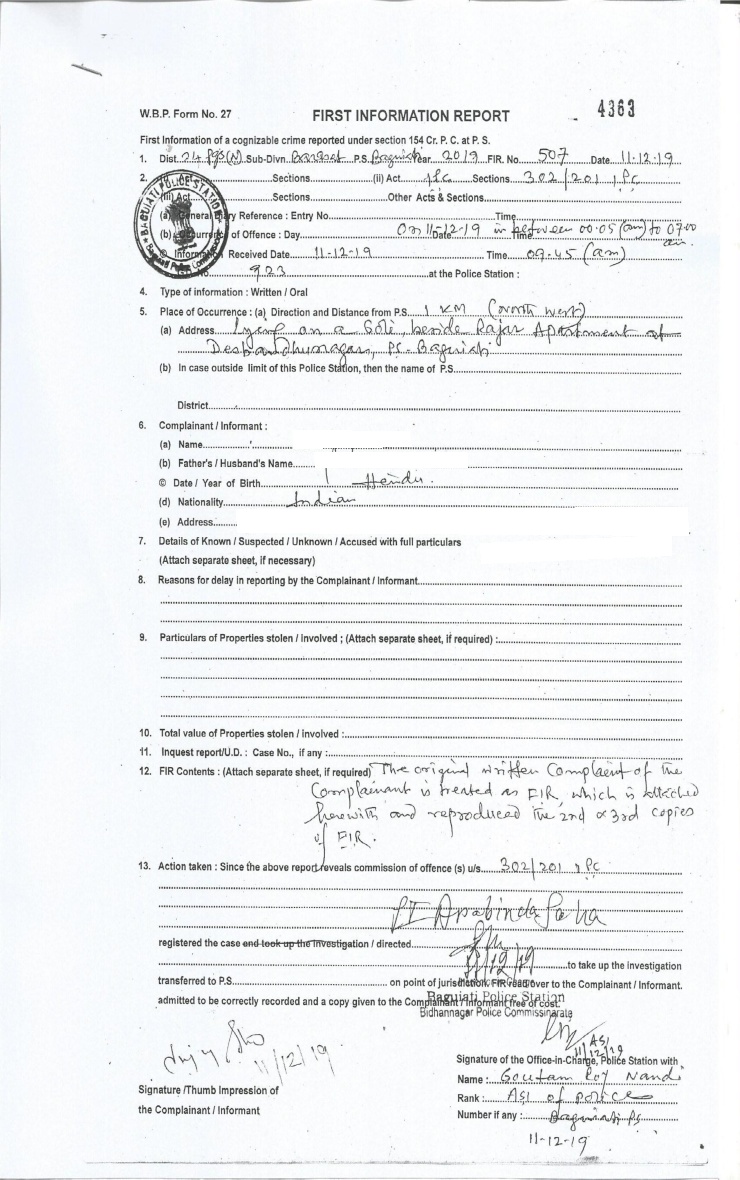 W.B.P. Form No. 27 FIRST INFORMATION REPORT 4363
First Information of a cognizable crime reported under section 154 Cr. P. C. at P. S.
1. Dist. 24 Pgs(N) Sub-Divn. Barasat P.S. Baguiati Year 2019 FIR. No. 507 Date 11-12-19
2. (i) Act Sections (ii) Act IPC Sections 302/201 IPC
(iii) Act Sections Other Acts & Sections
(a) General Diary Reference : Entry No. Time
(b) Occurrence of Offence : Day On 11-12-19 Date in between 00.05 (am) to 07.00 am
Time
© Information Received Date 11-12-19 Time 09.45 (am)
No. 923 at the Police Station :
BAGUIATI POLICE STATION
4. Type of information : Written / Oral
5. Place of Occurrence : (a) Direction and Distance from P.S. 1 KM (North West)
(a) Address Lying on a beside Rajar Apartment at
Deshbandhunagar, PS- Baguiati
(b) In case outside limit of this Police Station, then the name of P.S.
District
6. Complainant / Informant :
(a) Name
(b) Father's / Husband's Name
© Date / Year of Birth Hindu.
(d) Nationality Indian
(e) Address
7. Details of Known / Suspected / Unknown / Accused with full particulars
(Attach separate sheet, if necessary)
8. Reasons for delay in reporting by the Complainant / Informant
9. Particulars of Properties stolen / Involved ; (Attach separate sheet, if required) :
10. Total value of Properties stolen / involved :
11. Inquest report/U.D. : Case No., if any :
12. FIR Contents : (Attach separate sheet, if required) The original written Complaint of the
Complainant is treated as FIR, which is attached
herewith and reproduced the 2nd & 3rd copies
of FIR.
13. Action taken : Since the above report reveals commission of offence (s) u/s. 302/201 IPC
SI Arabinda Saha
registered the case end took up the investigation / directed
11/12/19 to take up the investigation
transferred to P.S. on point of jurisdiction. FIR read over to the Complainant / Informant.
admitted to be correctly recorded and a copy given to the Complainant / Informant free of cost.
Baguiati Police Station
Bidhannagar Police Commissinarate
11/12/19
ASI
11/12/19
Signature of the Office-in-Charge, Police Station with
Name : Goutam Roy Nandi
Signature /Thumb Impression of
Rank : ASI of police
the Complainant / Informant
Number if any : Baguiati PS
11-12-19